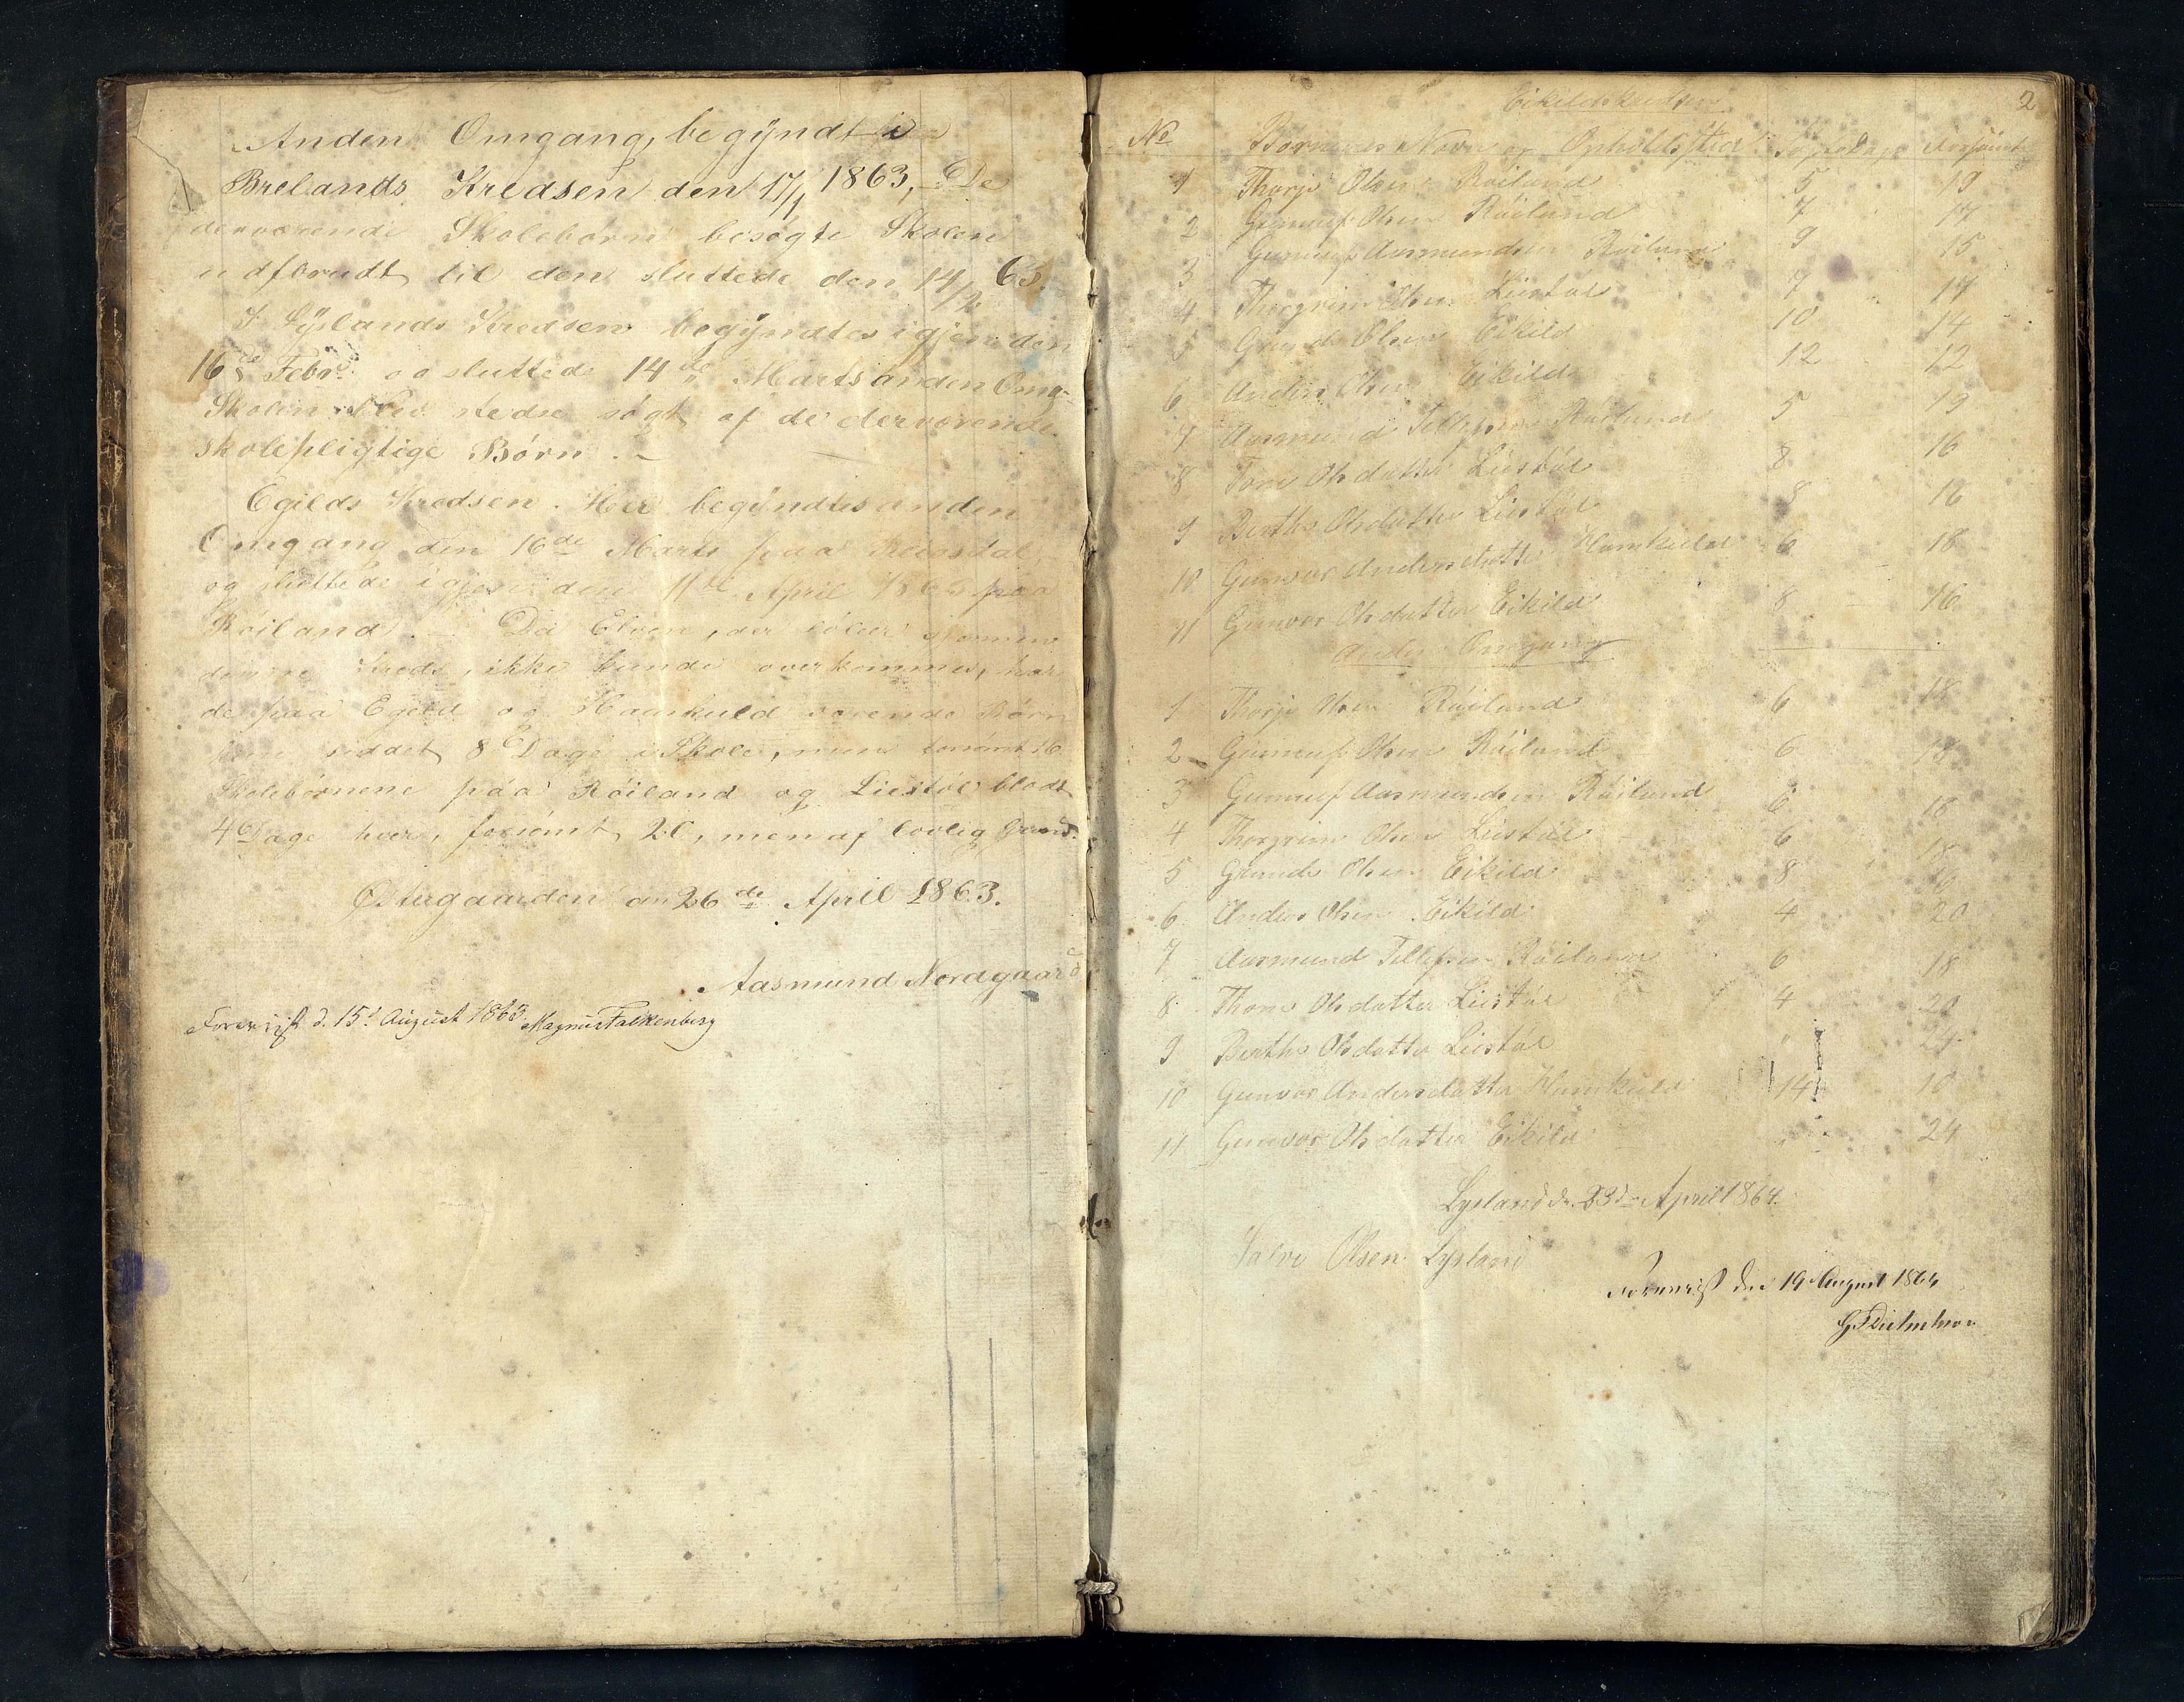 Anden Omgang, begyndt i
Brelands Kredsen den 17/1 1863, De
derværende Skolebørn besøgte Skolen
udbrudt til den sluttede den 14/2 63.
I Lyslands Kredsen begyndtes igjen den
16de Febr. og sluttede 14de Marts anden Omg.
Skolen blev stedse søgt af de derværende
skolepligtige Børn.
Egilds Kredsen. Her begyndtes anden
Omgang den 16de Marts paa
og sluttede igjen den 11te April 1863 paa
Røiland. Da Elven, der
denne Kreds, ikke kunde overkommes, har
de paa Egild og Haaskuld værende Børn
siddet 8 Dage i Skole, men forsømt 16
Skolebørnene paa Röiland og Liestöl blodt
4 Dage hver, forsömt 20, men af lovlig Grund.
Østergaarden den 26de April 1863.
Aasmund Nordgaard
Forevist d. 15d August 1863. Magnus Falkenberg
2
Eikilds Kredsen
No Börnenes Navn og Opholdssted Forsömte
1 Thorje Olsen Röiland 5 19
2 Gunnuf Olsen Röiland 7 17
3 Gunnuf Aasmundsen Röiland 9 15
4 Thorgrim Olsen Liestöl 7 17
5 Gunde Olsen Eikild 10 14
6 Anders Olsen Eikild 12 12
7 Aasmund Tellefsen Röiland 5 19
8 Tone Olsdatter Liestöl 8 16
9 Berthe Olsdatter Liestöl 8 16
10 Gunvor Andersdatter Haaskuld 6 18
11 Gunvor Olsdatter Eikild 8 16
Anden Omgang
1 Thorje Olsen Röiland 6 18
2 Gunnuf Olsen Röiland 6 18
3 Gunnuf Aasmundsen Röiland 6 18
4 Thorgrim Olsen Liestöl 6 18
5 Gunde Olsen Eikild 8 16
6 Anders Olsen Eikild 4 20
7 Aasmund Tellefsen Röiland 6 18
8 Thone Olsdatter Liestöl 4 20
9 Berthe Olsdatter Liestöl " 24
10 Gunvor Andersdatter Haaskuld 14 10
11 Gunvor Olsdatter Eikild " 24
Lysland d. 23de April 1864.
Salve Olsen Lysland
Forevist den 19 August 1864